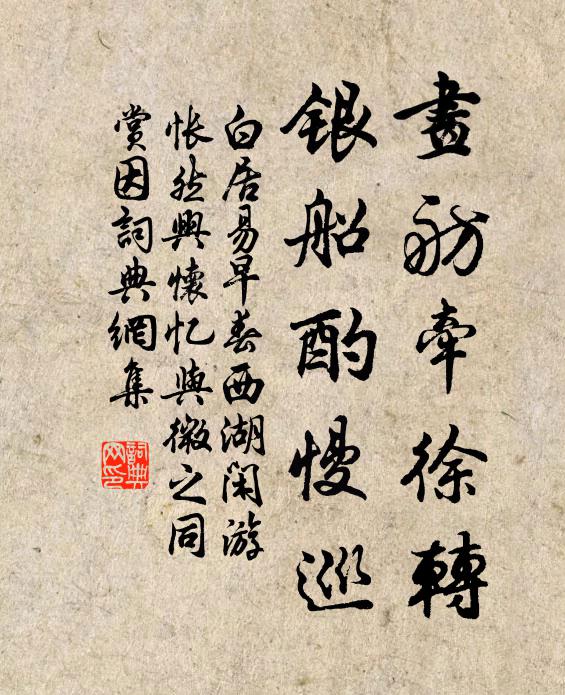 畫舫牽徐轉
銀船酌慢巡
白居易早春西湖閑游
悵然興懷忆與微之同
賞因詞典網集
詞典网印